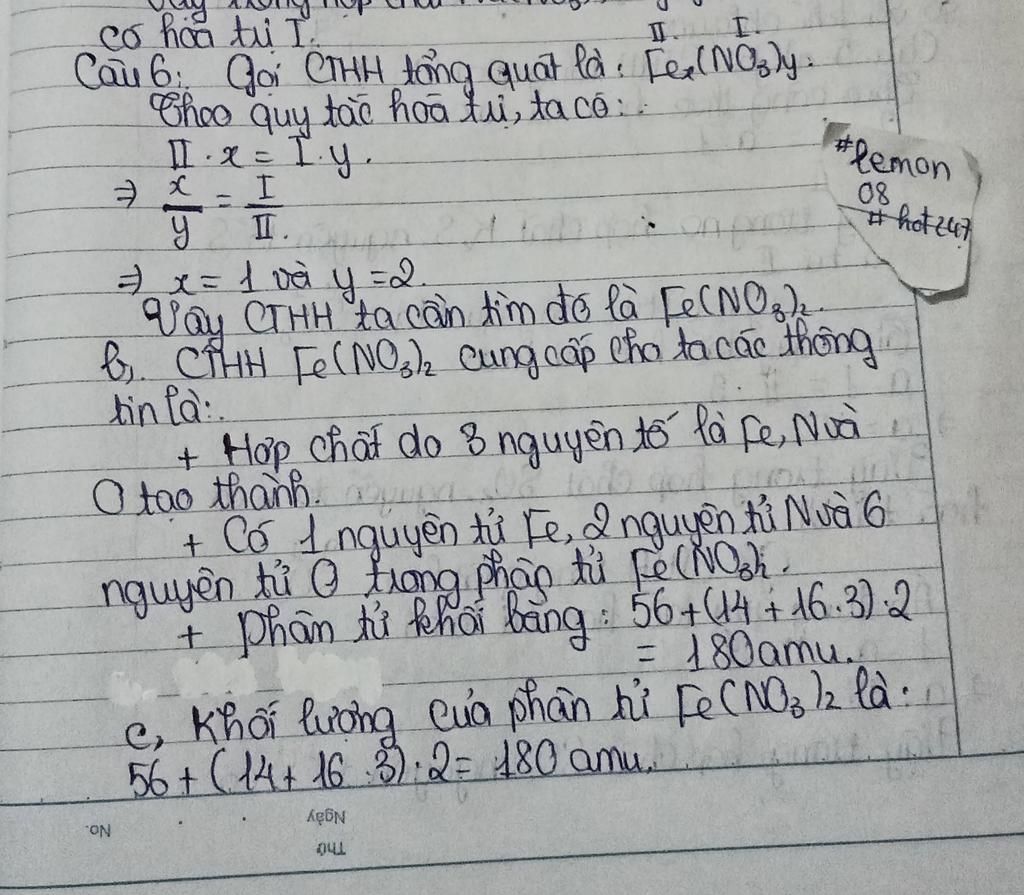 có hóa trị I.
II. I.
Câu 6: Gọi CTHH tổng quát là: Feₓ(NO₃)y.
Theo quy tắc hoá trị, ta có:
II . x = I . y.
⇒ x/y = I/II.
⇒ x = 1 và y = 2.
Vậy CTHH ta cần tìm đó là Fe(NO₃)₂.
b, CTHH Fe(NO₃)₂ cung cấp cho ta các thông
tin là:
+ Hợp chất do 3 nguyên tố là Fe, N và
O tạo thành.
+ Có 1 nguyên tử Fe, 2 nguyên tử N và 6
nguyên tử O trong phân tử Fe(NO₃)₂.
+ Phân tử khối bằng: 56 + (14 + 16 . 3) . 2
= 180 amu.
c, Khối lượng của phân tử Fe(NO₃)₂ là:
56 + (14 + 16 . 3) . 2 = 180 amu.
#lemon
08
#hot247
Thứ
Ngày
No.